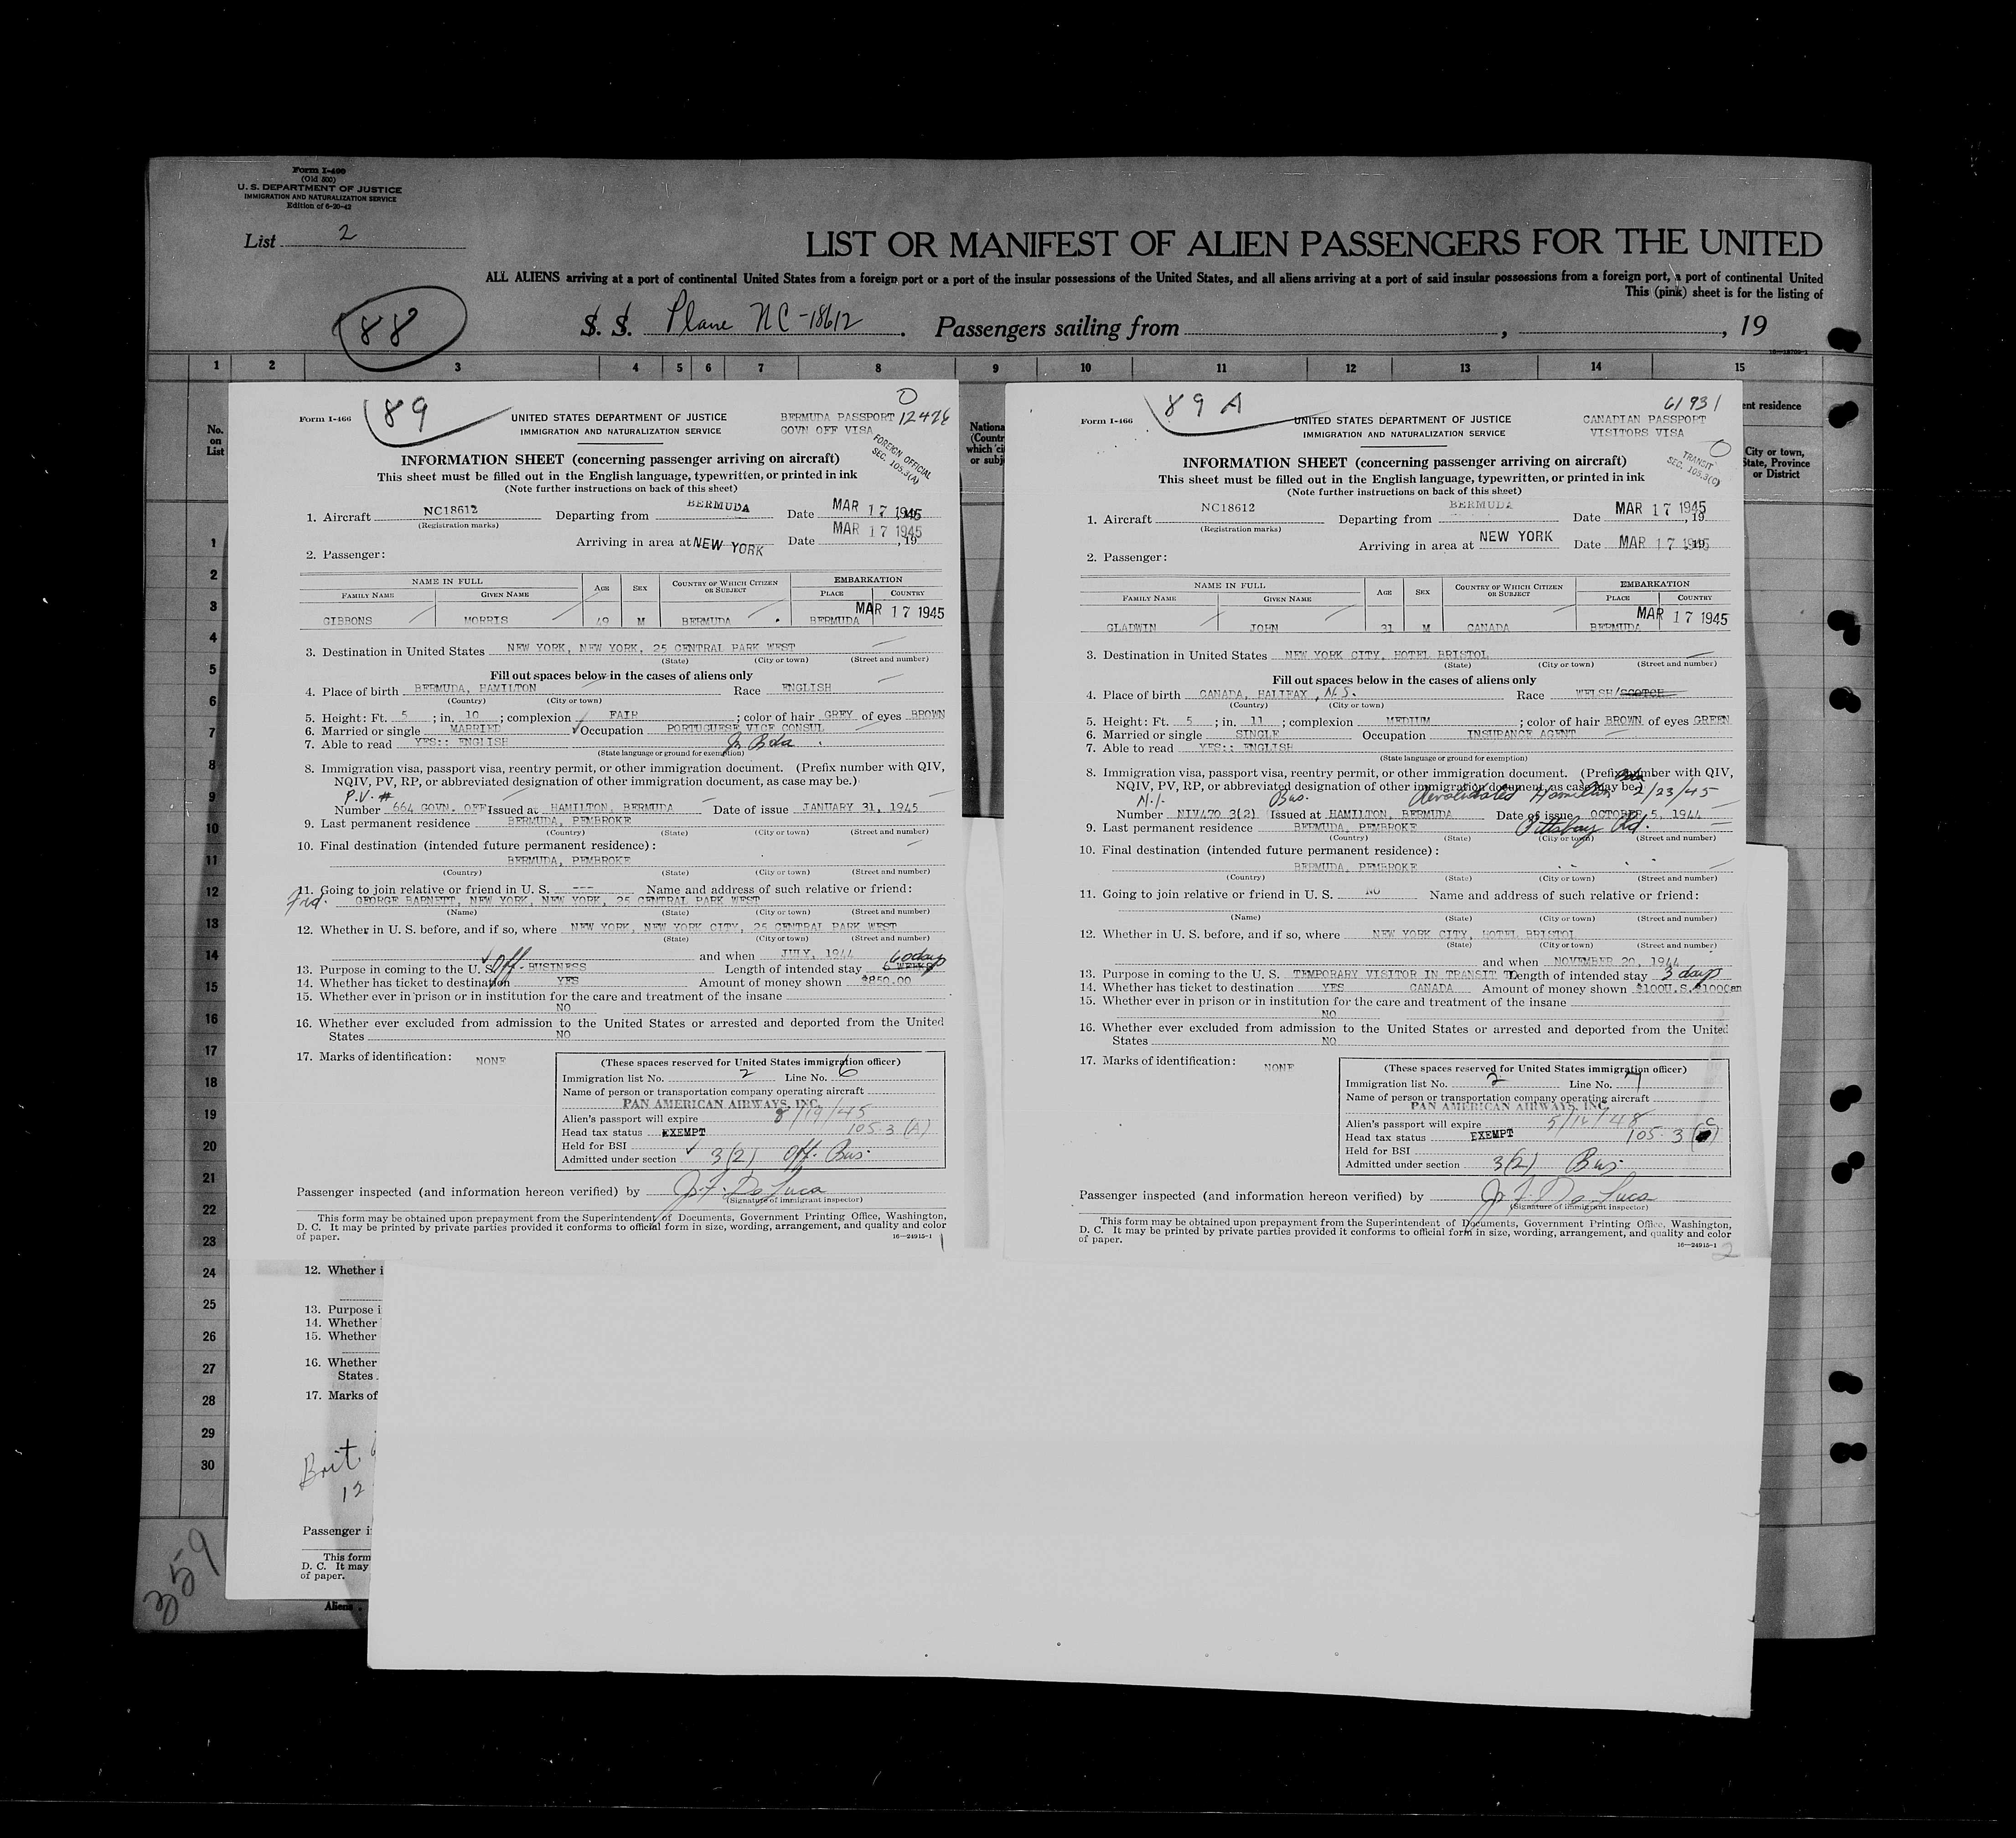 Form I-466
(Old 500)
U. S. DEPARTMENT OF JUSTICE
IMMIGRATION AND NATURALIZATION SERVICE
Edition of 6-20-42
List 2
LIST OR MANIFEST OF ALIEN PASSENGERS FOR THE UNITED
ALL ALIENS arriving at a port of continental United States from a foreign port or a port of the insular possessions of the United States, and all aliens arriving at a port of said insular possessions from a foreign port, a port of continental United
This (pink) sheet is for the listing of
88
S. S. Plane NC-18612. Passengers sailing from , , 19
1 2 3 4 5 6 7 8 9 10 11 12 13 14 15
No.
on
List
1
2
3
4
5
6
7
8
9
10
11
12
13
14
15
16
17
18
19
20
21
22
23
24
25
26
27
28
29
30
359
Form I-466
89
UNITED STATES DEPARTMENT OF JUSTICE
IMMIGRATION AND NATURALIZATION SERVICE
BERMUDA PASSPORT
GOVN OFF VISA
FOREIGN OFFICIAL
SEC. 105.3(A)
INFORMATION SHEET (concerning passenger arriving on aircraft)
This sheet must be filled out in the English language, typewritten, or printed in ink
(Note further instructions on back of this sheet)
1. Aircraft NC18612 Departing from BERMUDA Date MAR 17 1945
(Registration marks)
Arriving in area at NEW YORK Date MAR 17 1945, 19
2. Passenger:
NAME IN FULL AGE SEX COUNTRY OF WHICH CITIZEN OR SUBJECT EMBARKATION
FAMILY NAME GIVEN NAME PLACE COUNTRY
MAR 17 1945
GIBBONS MORRIS 49 M BERMUDA BERMUDA
3. Destination in United States NEW YORK, NEW YORK, 25 CENTRAL PARK WEST
(State) (City or town) (Street and number)
Fill out spaces below in the cases of aliens only
4. Place of birth BERMUDA, HAMILTON Race ENGLISH
(Country) (City or town)
5. Height: Ft. 5 ; in. 10 ; complexion FAIR ; color of hair GREY of eyes BROWN
6. Married or single MARRIED Occupation PORTUGUESE VICE CONSUL
7. Able to read YES:: ENGLISH In Bda.
(State language or ground for exemption)
8. Immigration visa, passport visa, reentry permit, or other immigration document. (Prefix number with QIV,
NQIV, PV, RP, or abbreviated designation of other immigration document, as case may be.)
P.V. #
Number 664 GOVN. OFF Issued at HAMILTON, BERMUDA Date of issue JANUARY 31, 1945
9. Last permanent residence BERMUDA, PEMBROKE
(Country) (State) (City or town) (Street and number)
10. Final destination (intended future permanent residence):
BERMUDA, PEMBROKE
(Country) (State) (City or town) (Street and number)
11. Going to join relative or friend in U. S. --- Name and address of such relative or friend:
Frd. GEORGE BARNETT, NEW YORK, NEW YORK, 25 CENTRAL PARK WEST
(Name) (State) (City or town) (Street and number)
12. Whether in U. S. before, and if so, where NEW YORK, NEW YORK CITY, 25 CENTRAL PARK WEST
(State) (City or town) (Street and number)
and when JULY, 1944 60 days
13. Purpose in coming to the U. S. Off. BUSINESS Length of intended stay 6 WEEKS
14. Whether has ticket to destination YES Amount of money shown $850.00
15. Whether ever in prison or in institution for the care and treatment of the insane
NO
16. Whether ever excluded from admission to the United States or arrested and deported from the United
States NO
17. Marks of identification: NONE
(These spaces reserved for United States immigration officer)
Immigration list No. 2 Line No. 6
Name of person or transportation company operating aircraft
PAN AMERICAN AIRWAYS, INC.
Alien's passport will expire 8/19/45
Head tax status EXEMPT 105.3 (A)
Held for BSI
Admitted under section 3(2) Off. Bus.
Passenger inspected (and information hereon verified) by Jo. F. De Luca
(Signature of immigrant inspector)
This form may be obtained upon prepayment from the Superintendent of Documents, Government Printing Office, Washington,
D. C. It may be printed by private parties provided it conforms to official form in size, wording, arrangement, and quality and color
of paper.
16—24915-1
12. Whether i
13. Purpose i
14. Whether
15. Whether
16. Whether
States
17. Marks of
Brit.
12
Passenger i
This form
D. C. It may
of paper.
Aliens
Nationa
(Countr
which ci
or subj
Form I-466
89 A
UNITED STATES DEPARTMENT OF JUSTICE
IMMIGRATION AND NATURALIZATION SERVICE
61931
CANADIAN PASSPORT
VISITORS VISA
TRANSIT
SEC. 105.3(C)
INFORMATION SHEET (concerning passenger arriving on aircraft)
This sheet must be filled out in the English language, typewritten, or printed in ink
(Note further instructions on back of this sheet)
1. Aircraft NC18612 Departing from BERMUDA Date MAR 17 1945, 19
(Registration marks)
Arriving in area at NEW YORK Date MAR 17 1945
2. Passenger:
NAME IN FULL AGE SEX COUNTRY OF WHICH CITIZEN OR SUBJECT EMBARKATION
FAMILY NAME GIVEN NAME PLACE COUNTRY
MAR 17 1945
GLADWIN JOHN 31 M CANADA BERMUDA
3. Destination in United States NEW YORK CITY, HOTEL BRISTOL
(State) (City or town) (Street and number)
Fill out spaces below in the cases of aliens only
4. Place of birth CANADA, HALIFAX, N.S. Race WELSH/SCOTCH
(Country) (City or town)
5. Height: Ft. 5 ; in. 11 ; complexion MEDIUM ; color of hair BROWN of eyes GREEN
6. Married or single SINGLE Occupation INSURANCE AGENT
7. Able to read YES:: ENGLISH
(State language or ground for exemption)
8. Immigration visa, passport visa, reentry permit, or other immigration document. (Prefix number with QIV,
NQIV, PV, RP, or abbreviated designation of other immigration document, as case may be.)
N.I. Bus. Revalidated Hamilton 2/23/45
Number NIV470 3(2) Issued at HAMILTON, BERMUDA Date of issue OCTOBER 5, 1944
9. Last permanent residence BERMUDA, PEMBROKE Pittsbay Rd.
(Country) (State) (City or town) (Street and number)
10. Final destination (intended future permanent residence):
BERMUDA, PEMBROKE
(Country) (State) (City or town) (Street and number)
11. Going to join relative or friend in U. S. NO Name and address of such relative or friend:
(Name) (State) (City or town) (Street and number)
12. Whether in U. S. before, and if so, where NEW YORK CITY, HOTEL BRISTOL
(State) (City or town) (Street and number)
and when NOVEMBER 20, 1944
13. Purpose in coming to the U. S. TEMPORARY VISITOR IN TRANSIT TO Length of intended stay 3 days
14. Whether has ticket to destination YES CANADA Amount of money shown $100U.S.$100Can
15. Whether ever in prison or in institution for the care and treatment of the insane
NO
16. Whether ever excluded from admission to the United States or arrested and deported from the United
States NO
17. Marks of identification: NONE
(These spaces reserved for United States immigration officer)
Immigration list No. 2 Line No. 7
Name of person or transportation company operating aircraft
PAN AMERICAN AIRWAYS, INC.
Alien's passport will expire 5/12/48
Head tax status EXEMPT 105.3 (C)
Held for BSI
Admitted under section 3(2) Bus.
Passenger inspected (and information hereon verified) by Jo. F. De Luca
(Signature of immigrant inspector)
This form may be obtained upon prepayment from the Superintendent of Documents, Government Printing Office, Washington,
D. C. It may be printed by private parties provided it conforms to official form in size, wording, arrangement, and quality and color
of paper.
16—24915-1
2
ent residence
City or town,
State, Province
or District